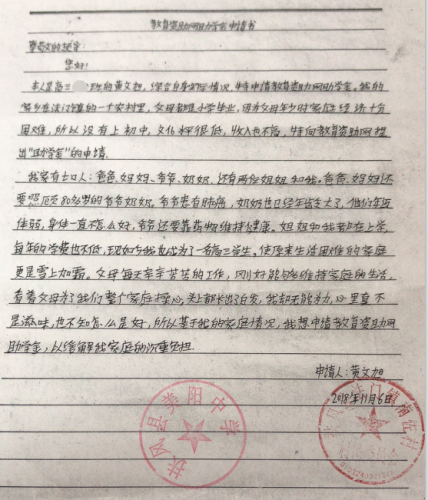 教育资助网助学金申请书
尊敬的领导:
您好!
本人是高三 班的黄文旭,综合自身实际情况,特申请教育资助网助学金。我的
家乡在法门镇的一个农村里,父母都是小学毕业,因为父母年少时家庭经济十分
困难,所以没有上初中,文化水平很低,收入也不高,特向教育资助网提
出"助学金"的申请。
我家有七口人:爸爸、妈妈、爷爷、奶奶、还有两位姐姐和我。爸爸、妈妈还
要照顾80多岁的爷爷奶奶。爷爷患有肺病,奶奶也已经年岁大了,他们年迈
体弱,身体一直不怎么好,爷爷还要靠药物维持健康。姐姐和我都在上学,
每年的学费也不低,现如今我也成为了一名高三学生。使原来生活困难的家庭
更是雪上加霜。父母每天辛辛苦苦的工作,刚好能够维持家庭的生活,
看着父母为了我们整个家庭操心,头上都长出了白发,我却无能为力,心里真不
是滋味,也不知怎么是好,所以基于我的家庭情况,我想申请教育资助网
助学金,以缓解我家庭的沉重负担。
申请人:黄文旭
2018年11月6日
扶风县 阳中学
法门镇